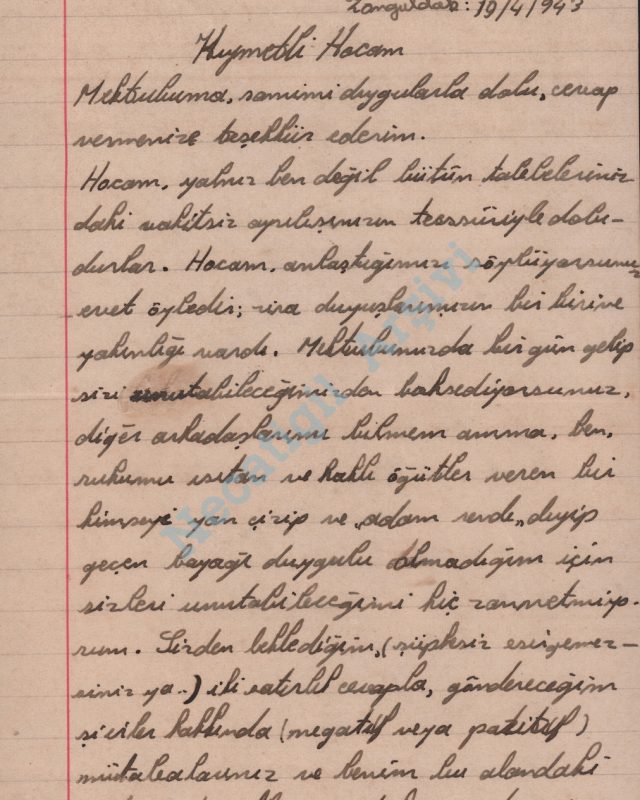 Zonguldak: 19/4/943
Kıymetli Hocam
Mektubuma, samimi duygularla dolu, cevap
vermenize teşekkür ederim.
Hocam, yalnız ben değil bütün talebeleriniz
dahi vakitsiz ayrılışınızın teessüriyle dolu-
durlar. Hocam, anlaştığımızı söylüyorsunuz
evet öyledir; zira duyuşlarımızın bir birine
yakınlığı vardı. Mektubunuzda bir gün gelip
sizi unutabileceğimizden bahsediyorsunuz,
diğer arkadaşlarımı bilmem amma, ben,
ruhumu ısıtan ve haklı öğütler veren bir
kimseyi yan çizip ve „adam sende„ deyip
geçen bayağı duygulu olmadığım için
sizleri unutabileceğimi hiç zannetmiyo-
rum. Sizden beklediğim, (şüphesiz esirgemez-
siniz ya..) iki satırlık cevapla, göndereceğim
şiirler hakkında (megatif veya pozitif)
mütalealarınız ve benim bu alandaki
Necatigil Arşivi